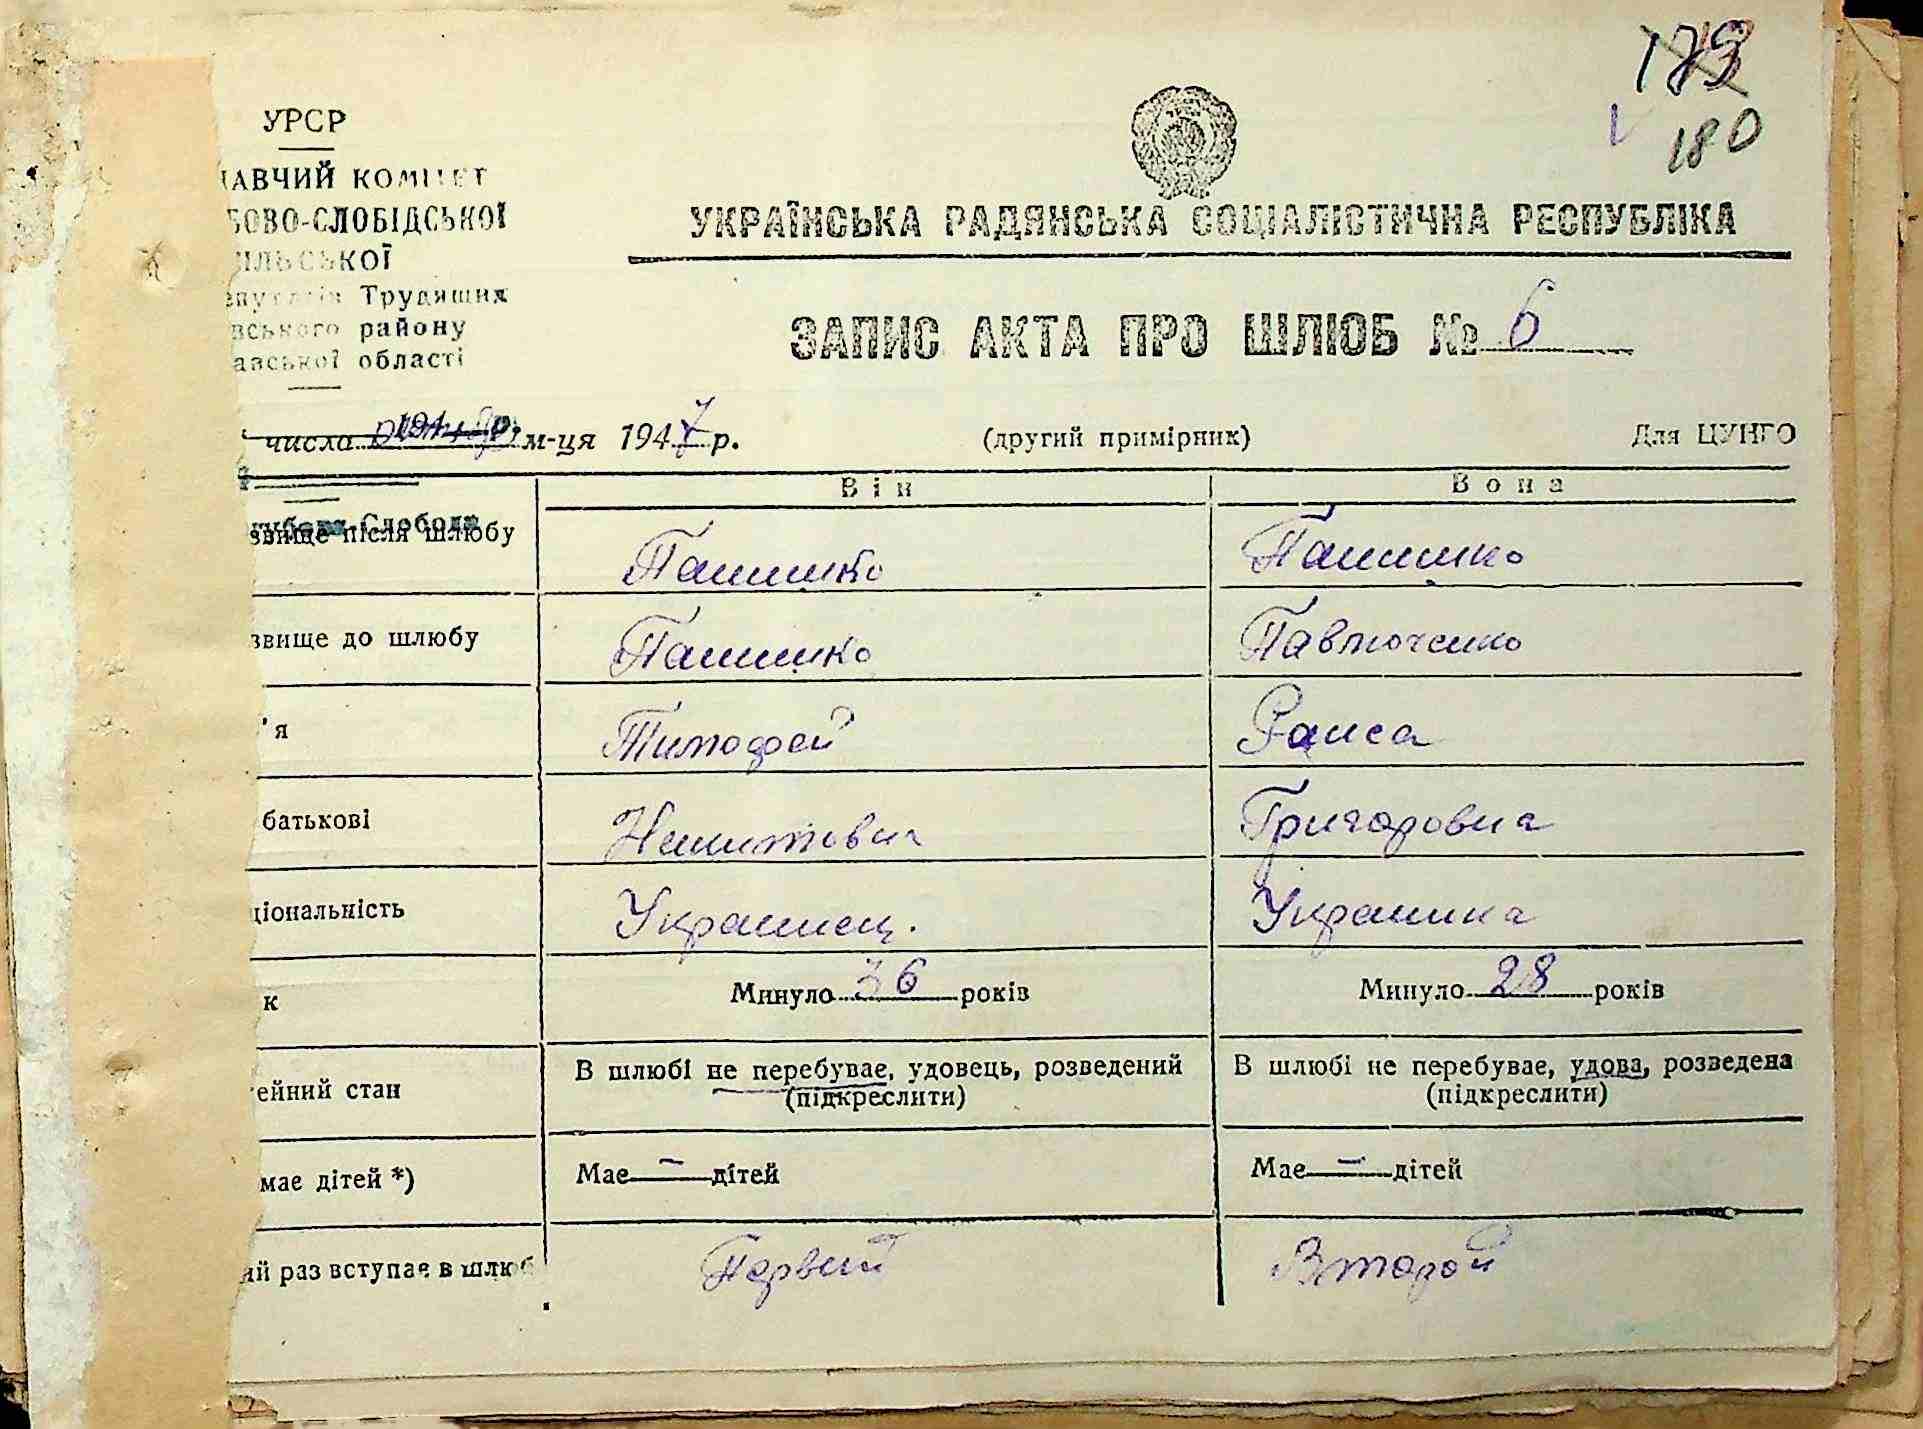 180
УРСР
АВЧИЙ КОМІТЕТ
БОВО-СЛОБІДСЬКОЇ
ІЛЬСЬКОЇ
епутатів Трудящих
вського району
авської області
УКРАЇНСЬКА РАДЯНСЬКА СОЦІАЛІСТИЧНА РЕСПУБЛІКА
ЗАПИС АКТА ПРО ШЛЮБ № 6
числа м-ця 1947 р.
(другий примірник)
Для ЦУНГО
Він Вона
Слобода
звище після шлюбу Пашинко Пашинко
звище до шлюбу Пашинко Павлюченко
'я Тимофей Раиса
батькові Никитович Григоровна
ціональність Украинец. Украинка
к Минуло 36 років Минуло 28 років
ейний стан В шлюбі не перебуває, удовець, розведений (підкреслити) В шлюбі не перебуває, удова, розведена (підкреслити)
має дітей *) Має — дітей Має — дітей
ий раз вступає в шлюб Первый Второй